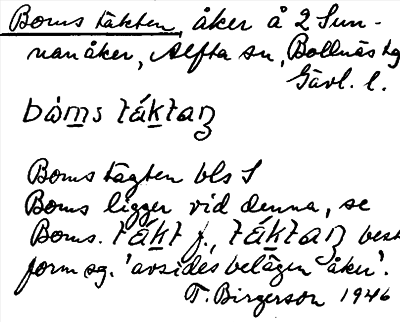 Boms täkten, åker å 2 Sun-
nanåker, Alfta sn, Bollnäs tg
Gävl. l.
bòms táktaꞃ
Boms tägten bls S
Boms ligger vid denna, se
Boms. täkt f., táktaꞃ best
form sg. 'avsides belägen åker'.
T. Birgerson 1946